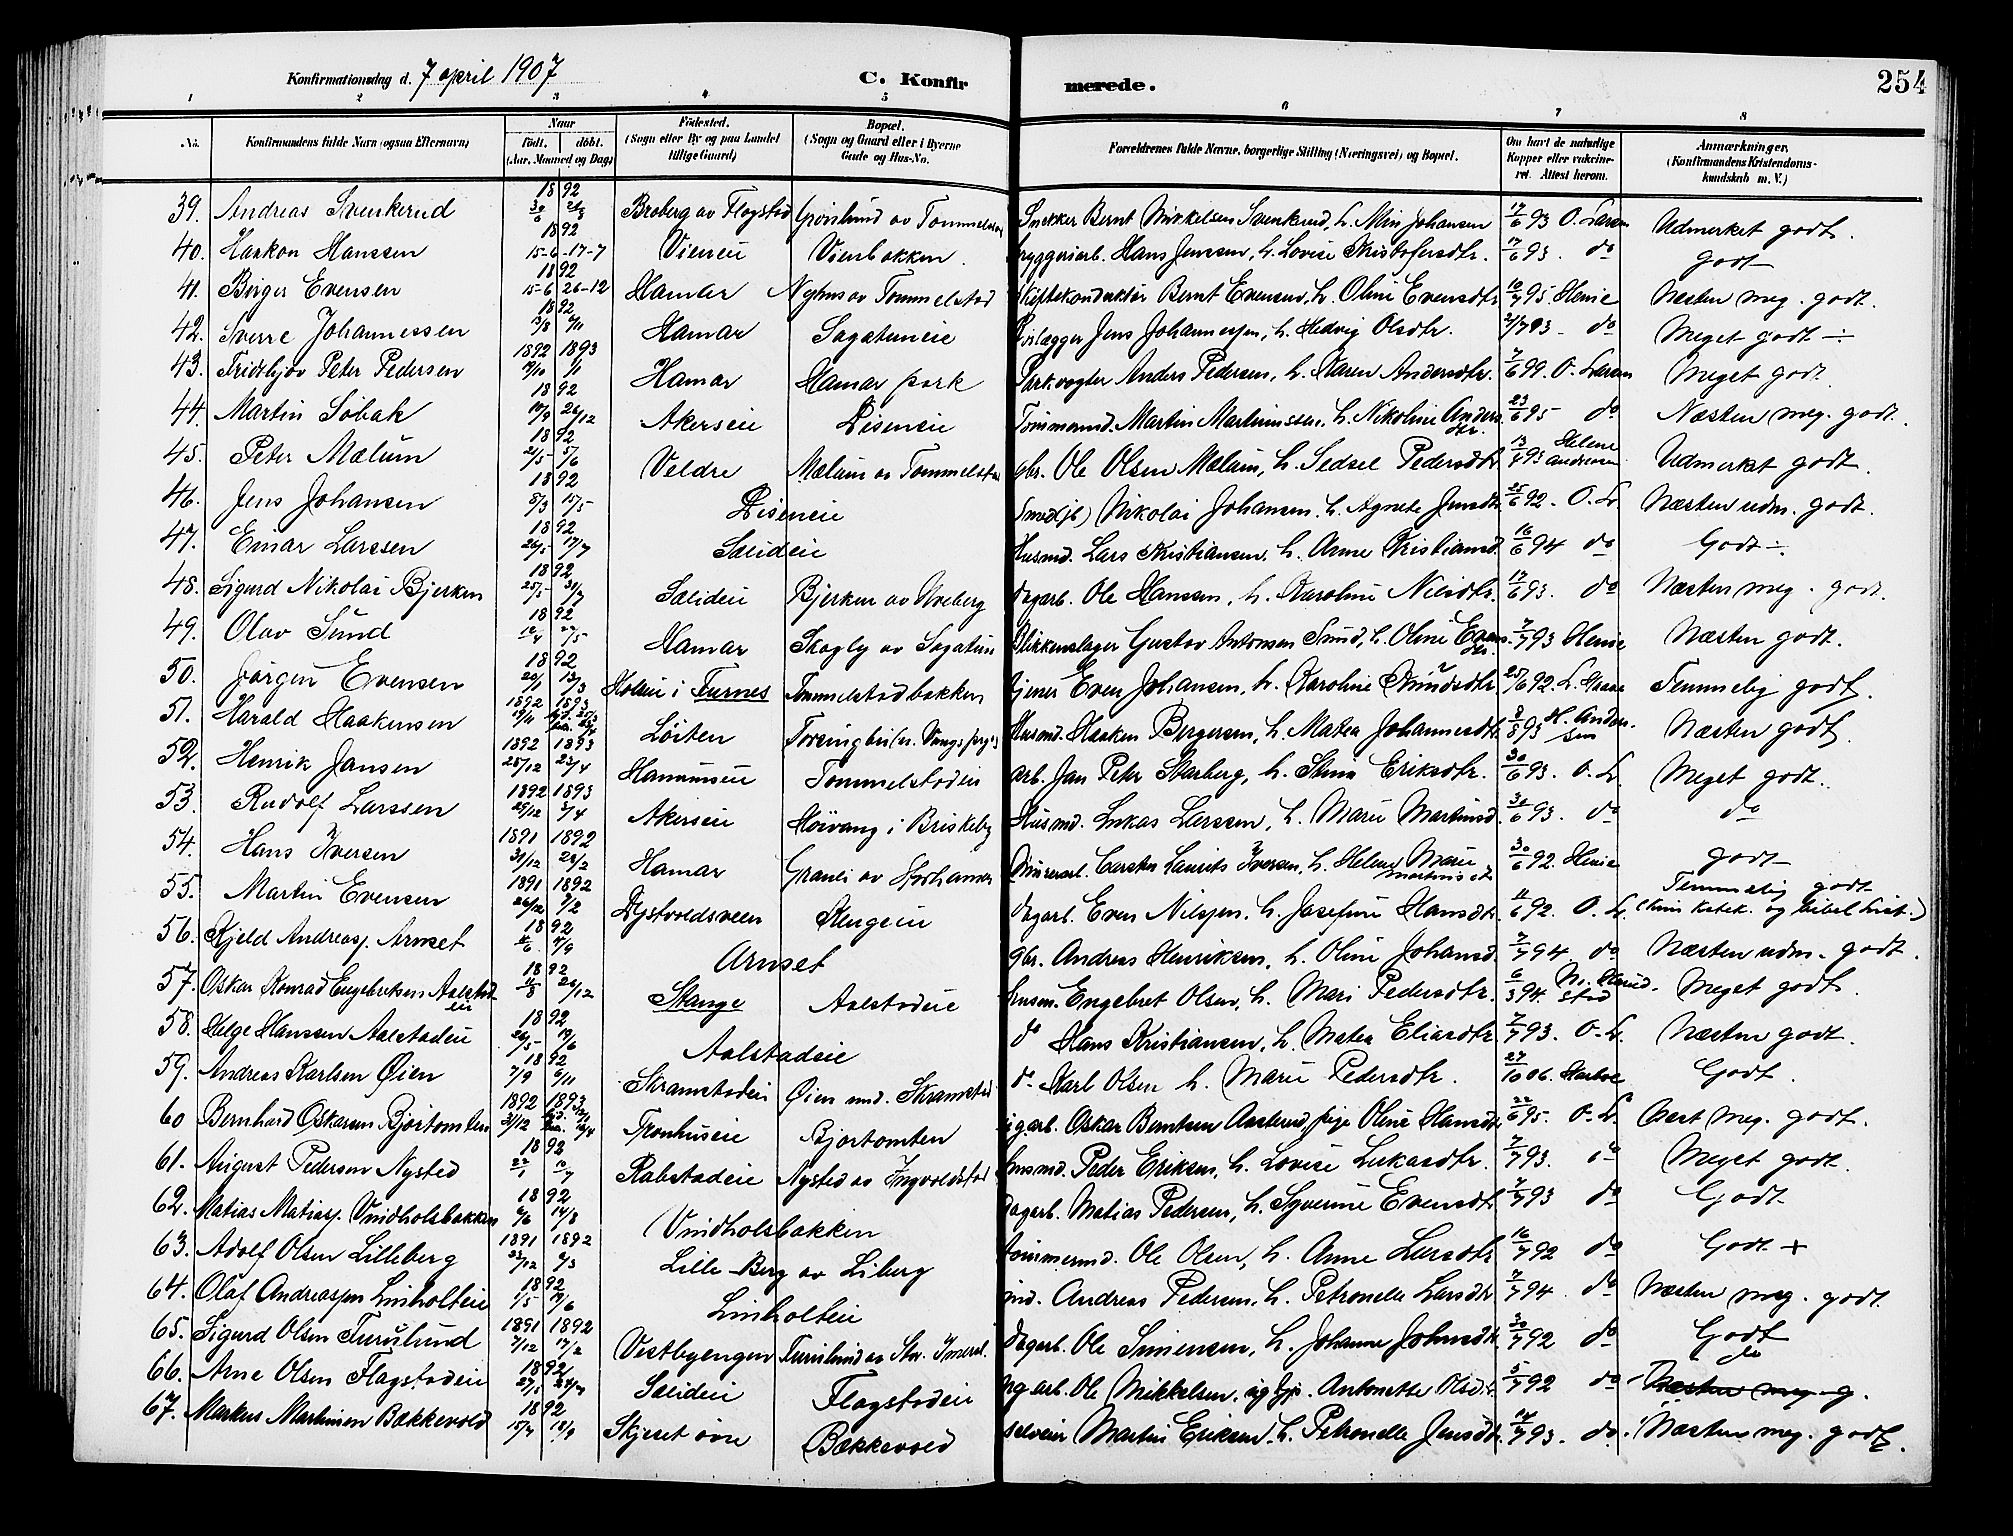 Konfirmationsdag d. 7 april 1907
C. Konfir
merede.
254
1 2 3 4 5 6 7 8
No. Konfirmandens fulde Navn (ogsaa Efternavn) Naar født. døbt. (Aar, Maaned og Dag) Fødested. (Sogn eller By og paa Landet tillige Gaard) Bopæl. (Sogn og Gaard eller i Byerne Gade og Hus-No. Forældrenes fulde Navne, borgerlige Stilling (Næringsvei) og Bopæl. Om havt de naturlige Kopper eller vakcineret. Attest herom. Anmærkninger. (Konfirmandens Kristendomskundskab m. V.)
39. Andreas Svenkerud 1892 Broberg av Flagstad Snekker Bernt Mikkelsen Svenkerud, h. Johansen 17/6 93 O. Larsen Udmerket godt.
40. Haakon Hanssen 1892 15-6 17-7 Vieneie Vienbakken. bryggeriarb. Hans Jenssen, h. Lovise Kristofersdtr. 17/6 93. do godt
41. Birger Evensen 1892 15-6 26-12 Hamar Nyhus av Tommelstad Skiftekonduktør Bernt Evensen, h. Oline Evensdtr 10/7 95. Henie Næsten meg. godt.
42. Sverre Johannessen 1892 13/8 6/11 Hamar Sagatuneie Jens Johannessen, h. Hedvig Olsdtr. 21/7 93 - do Meget godt ÷
43. Fridthjov Peter Pedersen 1892 1893 19/10 1/1 Hamar Hamar park Parkvogter Anders Pedersen, h. Karen Andersdtr. 7/6 99. O. Larsen Meget godt
44. Martin Søbak 1892 19/9 26/12 Akerseie Diseneie Tømmermd. Martin Martinussen, h. Nikoline Andersdtr. 23/6 95 do Næsten meg. godt.
45. Peter Mælum 1892 21/5 5/6 Veldre Mælum av Tommelstad gbr. Ole Olsen Mælum, h. Sedsel Pedersdtr 13/4 93 Helene Andersen Udmerket godt.
46. Jens Johansen 1892 8/3 15/5 Diseneie Smed (jb) Nikolai Johansen. h. Agnete Jensdtr 25/6 92. O. L. Næsten udm. godt.
47. Einar Larssen 1892 26/5 17/7 Sælideie Husmd. Lars Kristiansen, h. Anne Kristiansd. 16/6 94 do Godt ÷
48. Sigurd Nikolai Bjerken 1892 25/5 31/7 Sælideie Bjerken av Kveberg dagarb. Ole Hansen, h. Karoline Nilsdtr. 17/6 93. do Næsten meg. godt.
49. Olav Sund 1892 Hamar Skogly av Sagatun Blikkenslager Gustav Antonsen Sund, h. Oline Evensdtr. 7/7 93 Henie Næsten godt.
50. Jørgen Evensen 1892 20/1 13/3 Holsen i Furnes Tommelstadbakken tjener Even Johansen, h. Karoline Knudsdtr 25/6 92. Temmelig godt.
51. Harald Haakensen 1892 1893 19/11 Løiten Husmd. Haaken Bergersen, h. Matea Johannesdtr 8/8 93 H. Andersen Næsten godt.
52. Henrik Jansen 1892 1893 25/12 23/4 Hammeseie Tommelstadeie arb. Jan Peter Starberg, h. Stina Eriksdtr. 30/6 93. O. L. Meget godt.
53. Rudolf Larssen 1892 1893 25/12 3/4 Akerseie Høivang i Briskeby Husmd. Lukas Larssen, h. Marie Martinsd. 30/6 93. do do
54. Hans Iversen 1891 1892 31/12 28/2 Hamar Carsten Laurits Iversen, h. Helene Marie Martinsdtr 30/6 92. Henie godt
55. Martin Evensen 1891 1892 26/12 7/2 Dystvoldsveen dagarb. Even Nilssen, h. Josefine Hansdtr. 11/6 92. O. L. Temmelig godt (kun katek. og bibelhist.)
56. Kjeld Andreas. Arnset 1892 Arnset gbr. Andreas Henriksen, h. Oline Johansd. 7/7 94. do Næsten udm. godt.
57. Oskar Konrad Engebretsen Aalstadeie 1892 11/8 26/12 Stange Aalstadeie husm. Engebret Olsen, h. Mari Pedersdtr. 6/3 94. Meget godt.
58. Helge Hanssen Aalstadeie 1892 26/5 19/6 Aalstadeie do Hans Kristiansen, h. Matea Eliasdtr. 7/7 93. O. L. Næsten godt.
59. Andreas Karlsen Øien 1892 7/9 6/11 Skramstadeie Øien und. Skramstad do Karl Olsen h. Marie Pedersdtr. 27/10 06. Godt.
60 Bernhard Oskarsen Bjørtomten 1892 1893 31/12 Tronhuseie Bjørtomten Oskar Berntsen Aasterud, pige Oline Hansdtr 22/6 95. O. L. Næst. meg. godt.
61. August Pedersen Nysted 1892 Rabstadeie Nysted av Ingvoldstad husmd. Peder Eriksen, h. Lovise Lukasdtr. 7/7 93. do Meget godt.
62. Matias Matias. Vindholsbakken 1892 6/6 14/8 Vindholsbakken dagarb. Matias Pedersen, h. Syverine Evensdtr 7/7 93 do Godt
63. Adolf Olsen Lilleberg 1891 1892 23/12 6/3 Lille-Berg av Liberg tømmermd. Ole Olsen, h. Anne Larsdtr. 16/7 92 do Godt +
64. Olaf Andreassen Linholteie 1892 1/5 19/6 Linholteie md. Andreas Pedersen, h. Petronelle Larsdtr 7/7 94 do Næsten meg. godt.
65. Sigurd Olsen Furulund 1891 1892 7/12 17/2 Vestbyengen Furulund av Stor. Imerslund dagarb. Ole Simensen, h. Johanne Johnsdtr. 30/7 92 do Godt
66. Arne Olsen Flagstadeie 1892 27/5 24/7 Sælideie Flagstadeie arb. Ole Mikkelsen, og Antonette Olsdtr. 5/7 92 do do Næsten meg. g.
67. Markus Martinsen Bækkevold 1892 15/7 18/9 Skjeset øvre Bækkevold selveier Martin Eriksen, h. Petronelle Jensdtr. 14/7 93. do. Næsten meg. godt.